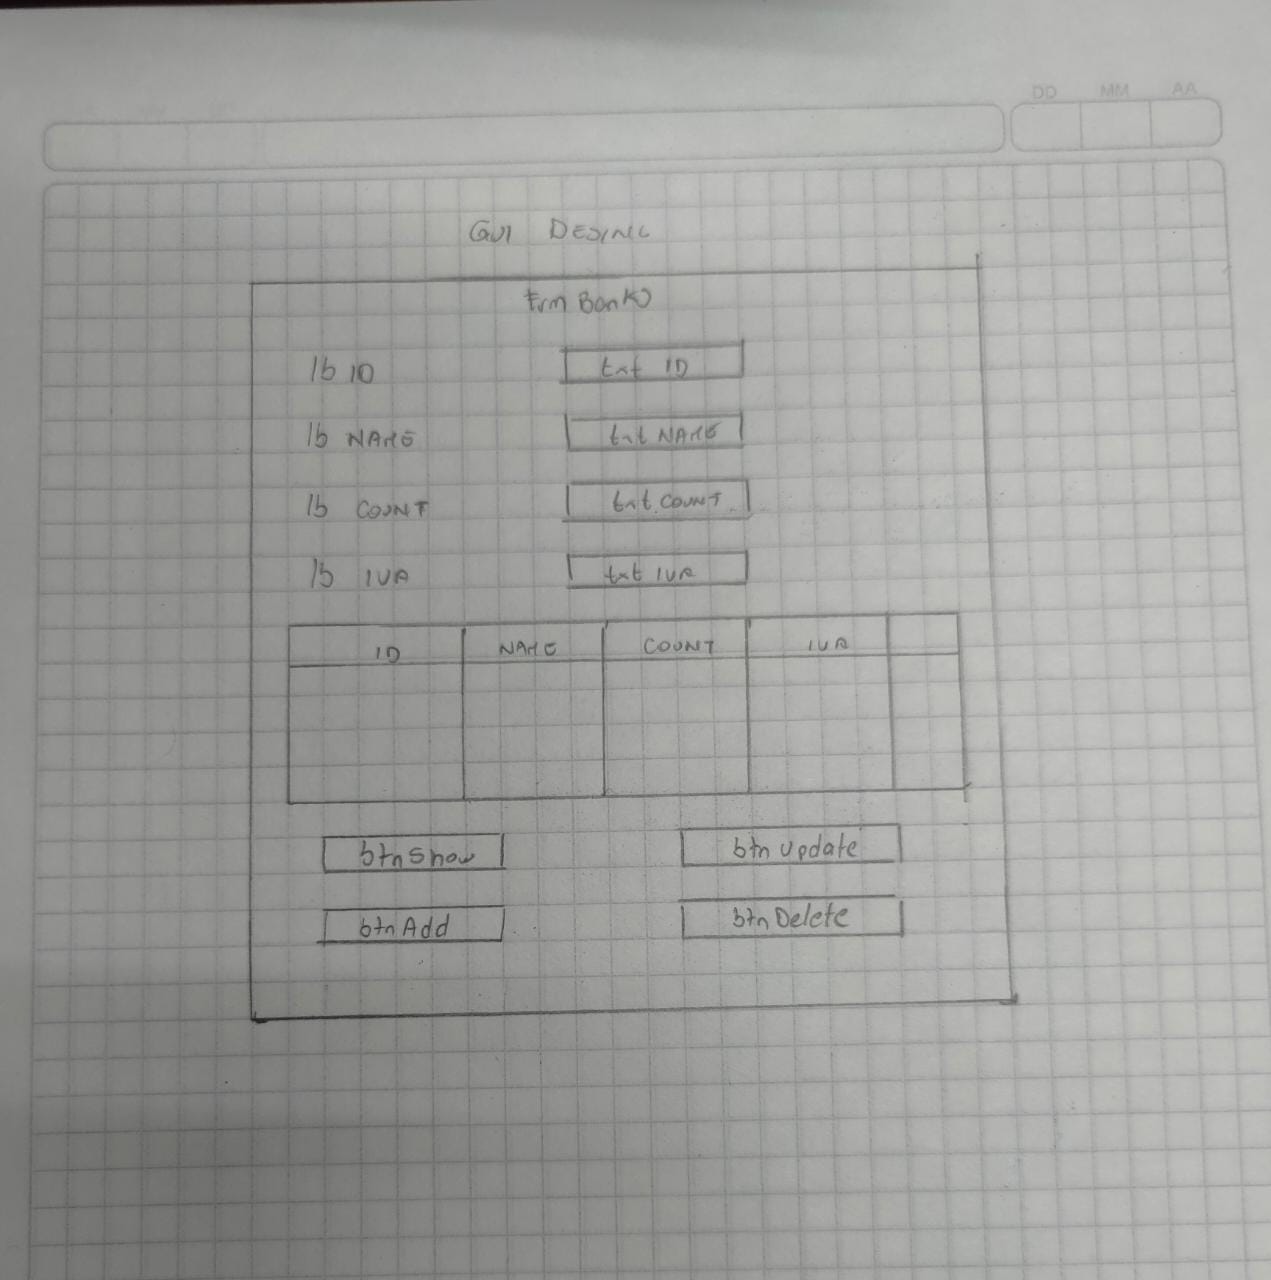 DD MM AA
GUI
Frm Bank
lb ID txt ID
lb NAME txt NAME
lb COUNT txt COUNT
lb IVA txt IVA
ID NAME COUNT IVA
btnShow btn update
btnAdd btn Delete